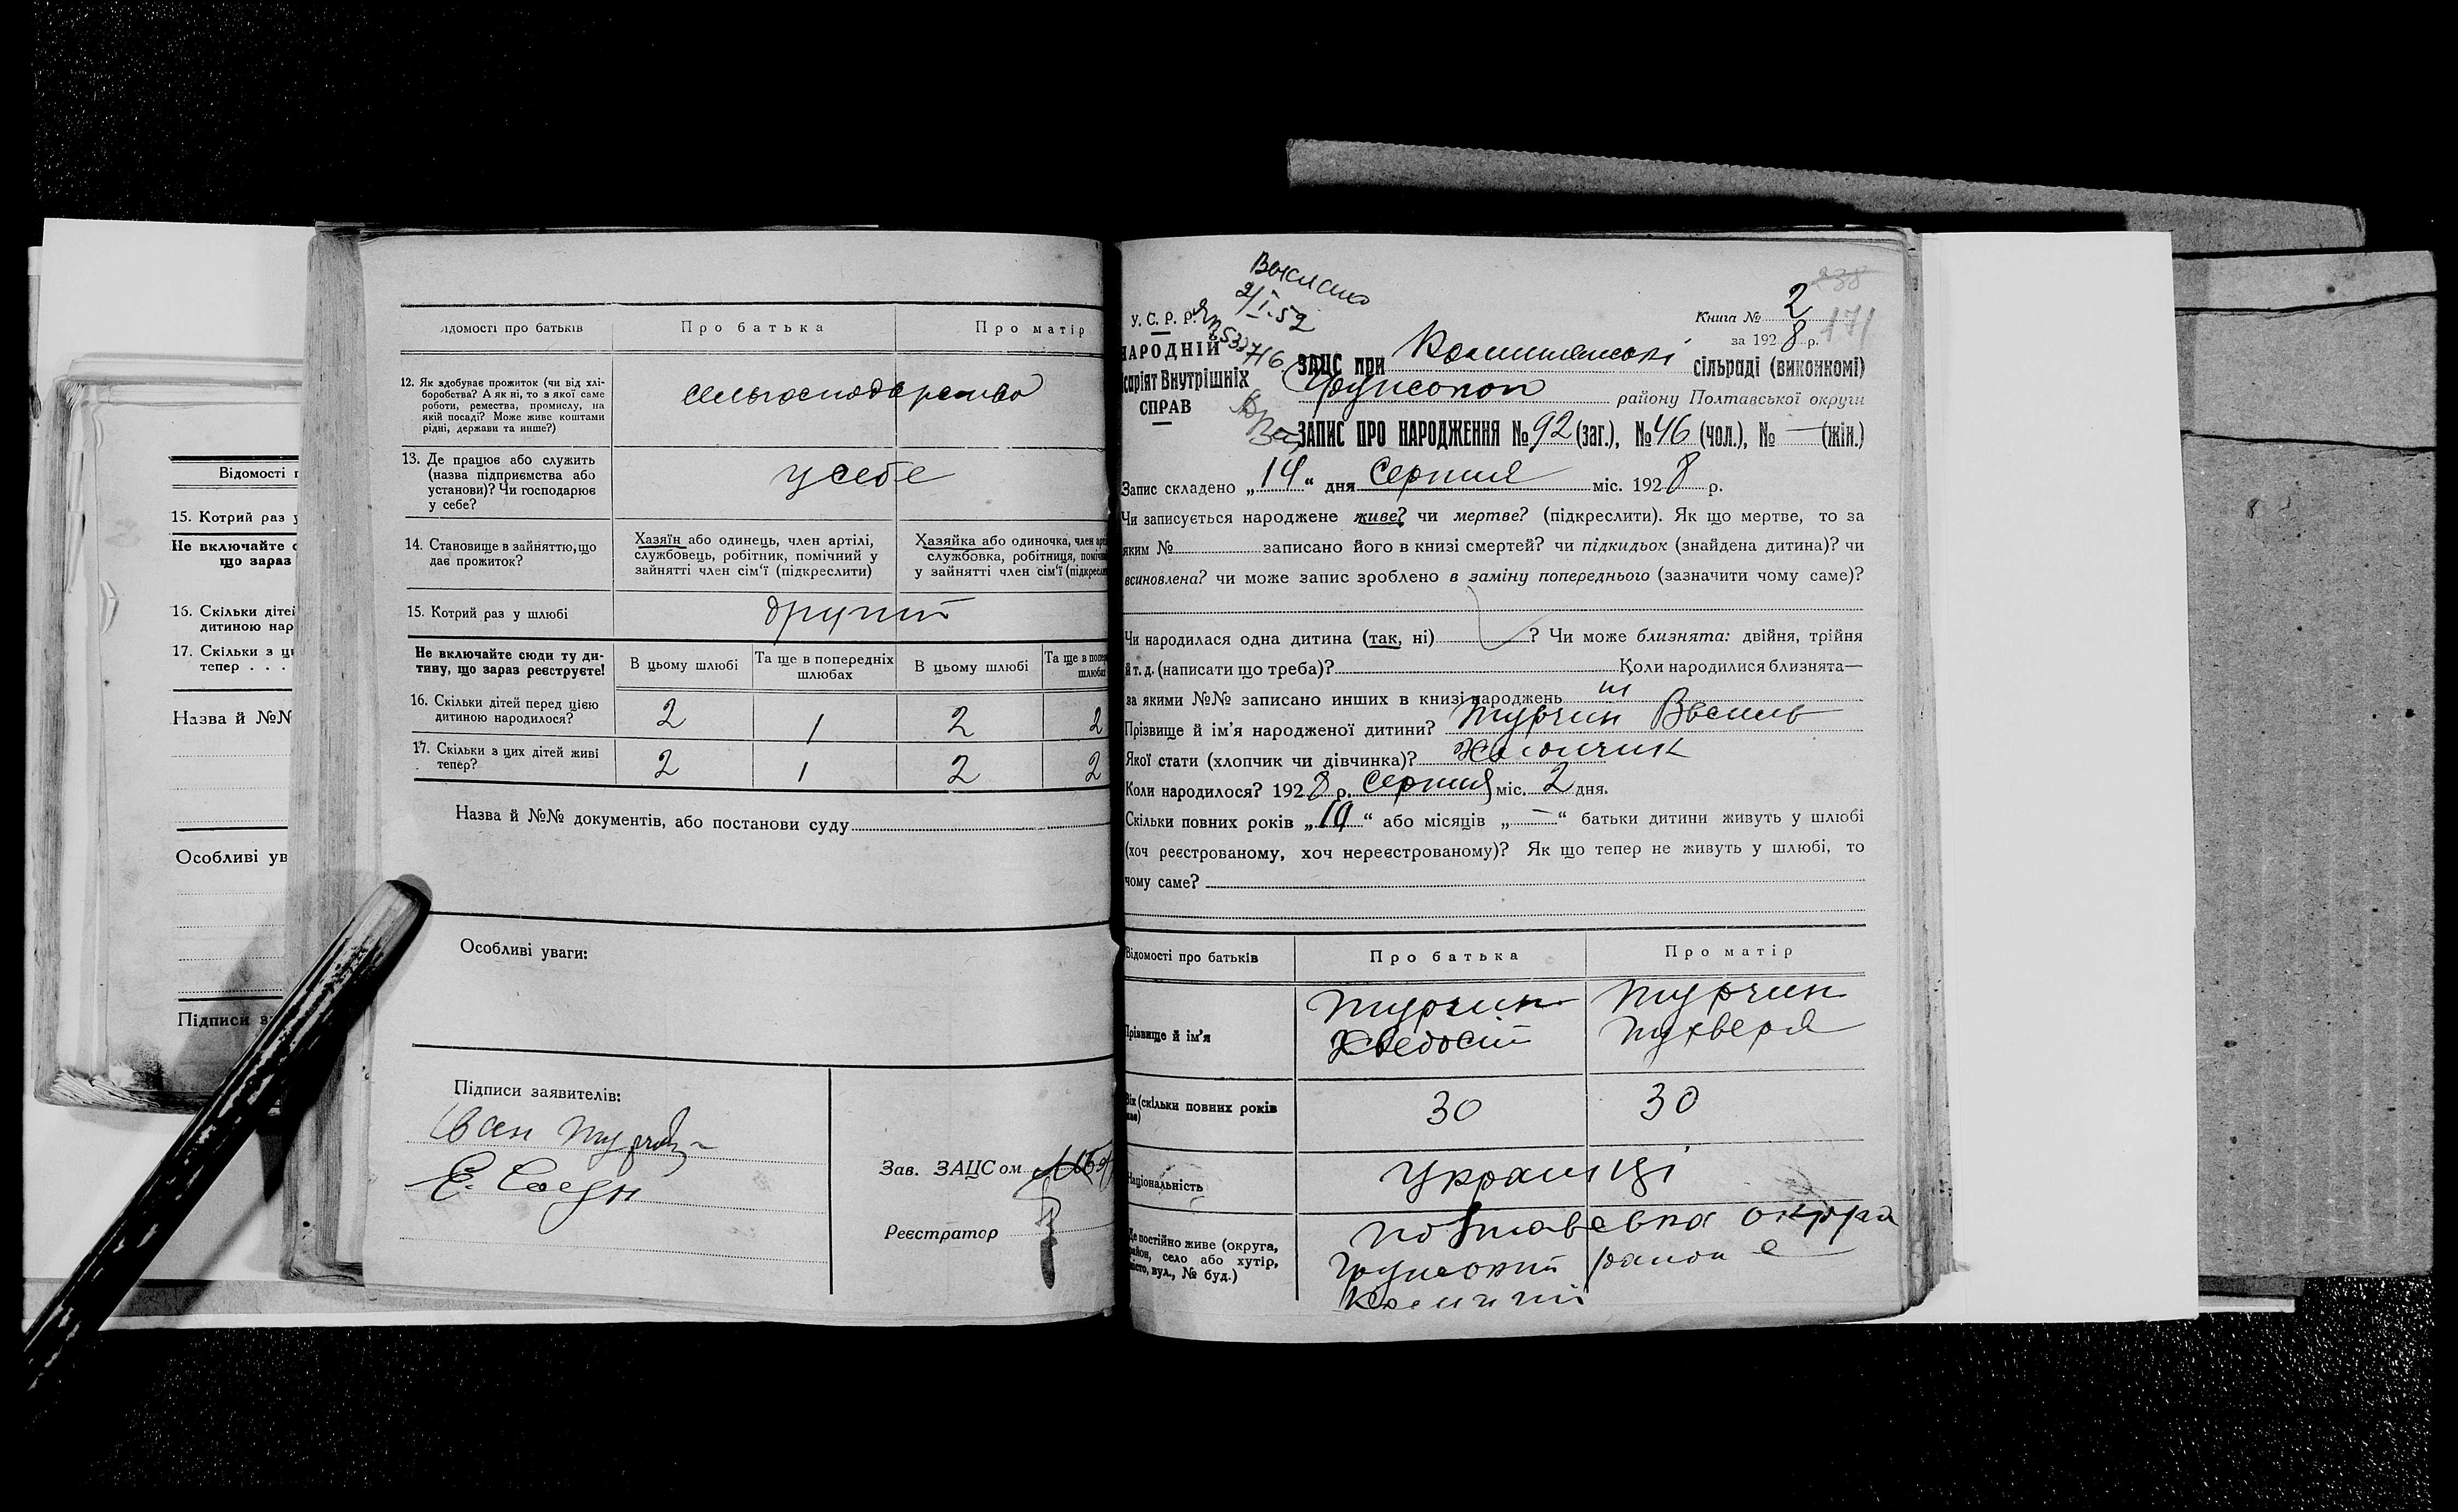 Відомості п
15. Котрий раз у
Не включайте с
що зараз
16. Скільки дітей
дитиною нар
17. Скільки з ці
тепер . . .
Назва й №№
Особливі ув
Підписи з
ідомості про батьків
Про батька
Про матір
12. Як здобуває прожиток (чи від хлі-
боробства? А як ні, то з якої саме
роботи, ремества, промислу, на
якій посаді? Може живе коштами
рідні, держави та инше?)
сельгосподарство
13. Де працює або служить
(назва підприємства або
установи)? Чи господарює
у себе?
у себе
14. Становище в зайняттю, що
дає прожиток?
Хазяїн або одинець, член артілі,
службовець, робітник, помічний у
зайнятті член сім'ї (підкреслити)
Хазяйка або одиночка, член арті
службовка, робітниця, поміч
у зайнятті член сім'ї (підкресл
15. Котрий раз у шлюбі
другий
Не включайте сюди ту ди-
тину, що зараз реєструєте!
В цьому шлюбі
Та ще в попередніх
шлюбах
В цьому шлюбі
Та ще в попер
шлюбах
16. Скільки дітей перед цією
дитиною народилося?
2 1 2 2
17. Скільки з цих дітей живі
тепер?
2 1 2 2
Назва й №№ документів, або постанови суду
Особливі уваги:
Підписи заявителів:
Іван Турчин
Е.
Зав. ЗАЦСом
Реєстратор
Выслано
2/I-52
238
171
У. С. Р. Р.
НАРОДНІЙ
саріят Внутрішніх
СПРАВ
Книга № 2
за 1928 р.
ЗАЦС при сільраді (виконкомі)
району Полтавської округи
ЗАПИС ПРО НАРОДЖЕННЯ № 92 (заг.), № 46 (чол.), № — (жін.)
Запис складено „14“ дня серпня міс. 1928 р.
Чи записується народжене живе? чи мертве? (підкреслити). Як що мертве, то за
яким № записано його в книзі смертей? чи підкидьок (знайдена дитина)? чи
всиновлена? чи може запис зроблено в заміну попереднього (зазначити чому саме)?
Чи народилася одна дитина (так, ні) ? Чи може близнята: двійня, трійня
й т. д. (написати що треба)? Коли народилися близнята—
за якими №№ записано инших в книзі народжень
Прізвище й ім'я народженої дитини? Турчин Василь
Якої стати (хлопчик чи дівчинка)? Хлопчик
Коли народилось? 1928 р. серпня міс. 2 дня.
Скільки повних років „10“ або місяців „—“ батьки дитини живуть у шлюбі
(хоч реєстрованому, хоч нереєстрованому)? Як що тепер не живуть у шлюбі, то
чому саме?
Відомості про батьків
Про батька
Про матір
Прізвище й ім'я
Турчин
Хведосій
Турчин
Вік (скільки повних років
має)
30
30
Національність
Українці
Де постійно живе (округа,
район, село або хутір,
місто, вул., № буд.)
Полтавська округа
район с